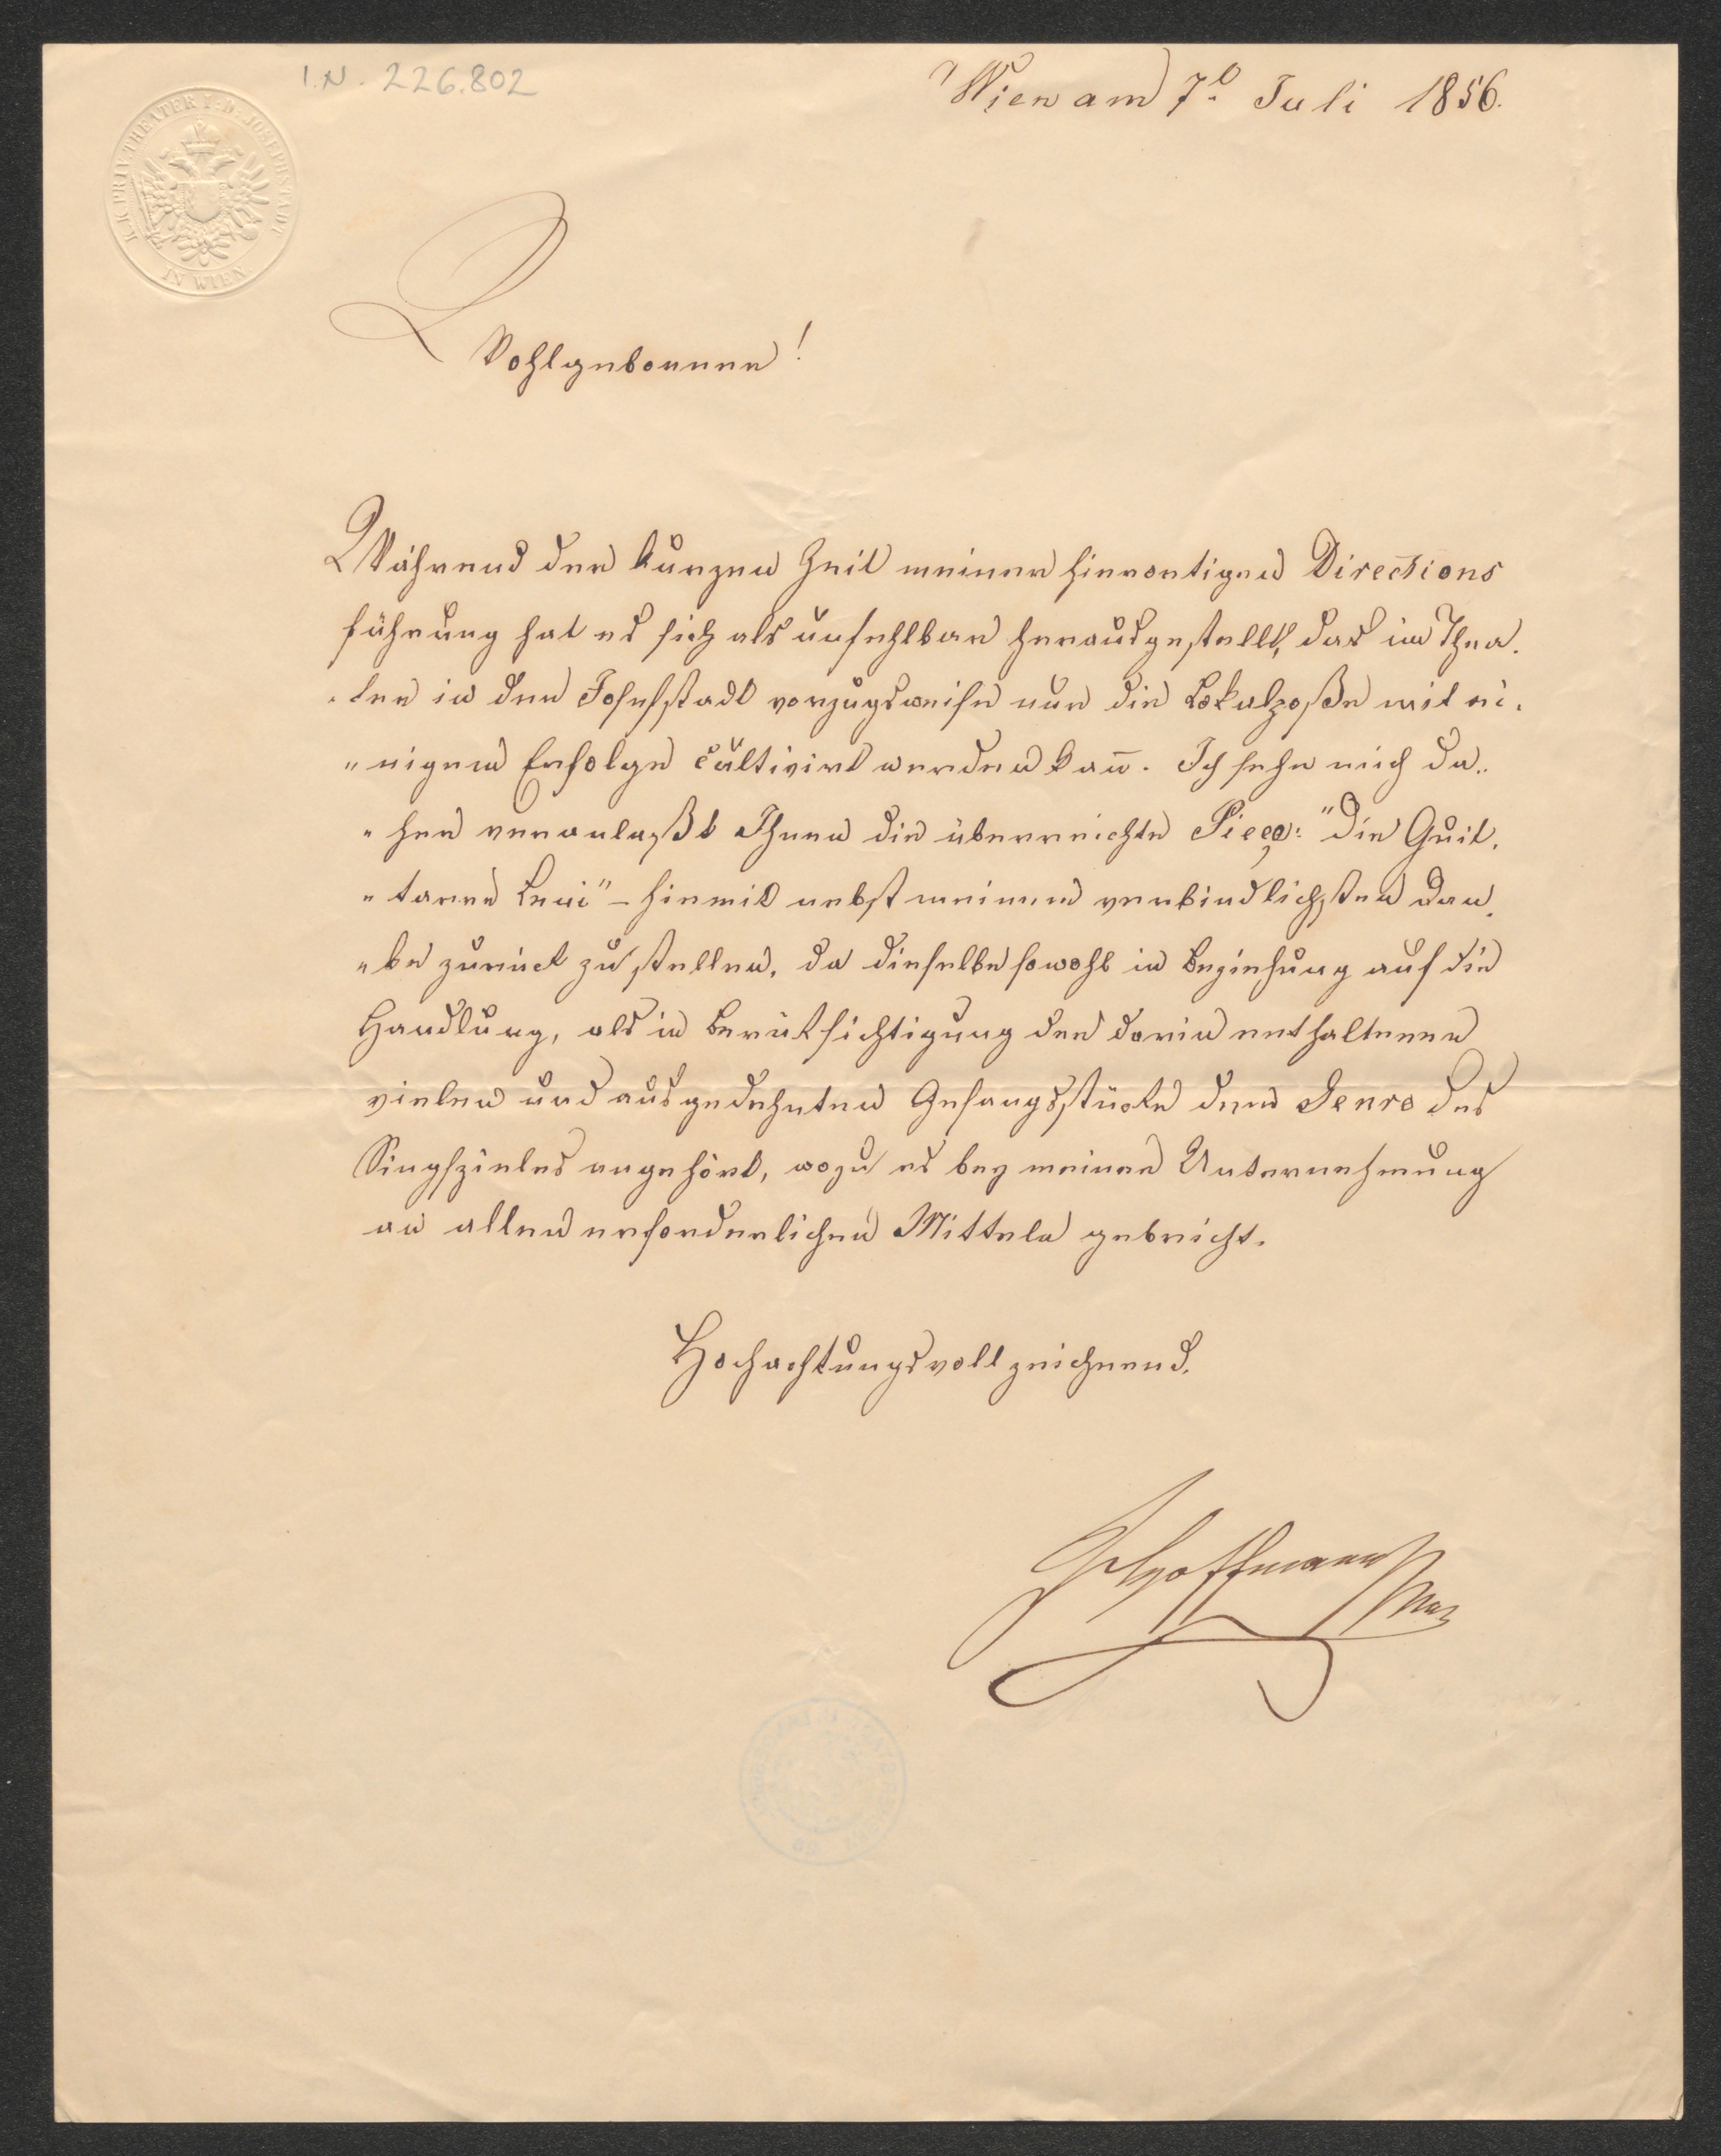 I.N. 226.802
Wien am 7t. Juli 1856.
K.K. PRIV. THEATER I. D. JOSEPHSTADT
IN WIEN
Wohlgeborner!
Während der kurzen Zeit meiner hierortigen Directions
führung hat es sich als unfehlbar herausgestellt, das im Thea-
-ter in der Josefstadt vorzugsweise nur die Lokalposse mit ei-
"nigem Erfolge cultivirt werden kan̄. Ich sehe mich da-
"her veranlaßt Ihnen die überreichte Pieçe: "Die Guit-
"tarre Leni" – hiemit nebst meinem verbindlichsten Dan-
"ke zurück zu stellen, da dieselbe sowohl in Beziehung auf die
Handlung, als in Berüksichtigung der darin enthaltenen
vielen und ausgedehnten Gesangsstücke dem Genre des
Singspieles angehört, wozu es bey meiner Unternehmung
an allen erforderlichen Mitteln gebricht.
Hochachtungsvoll zeichnend.
Hoffmann